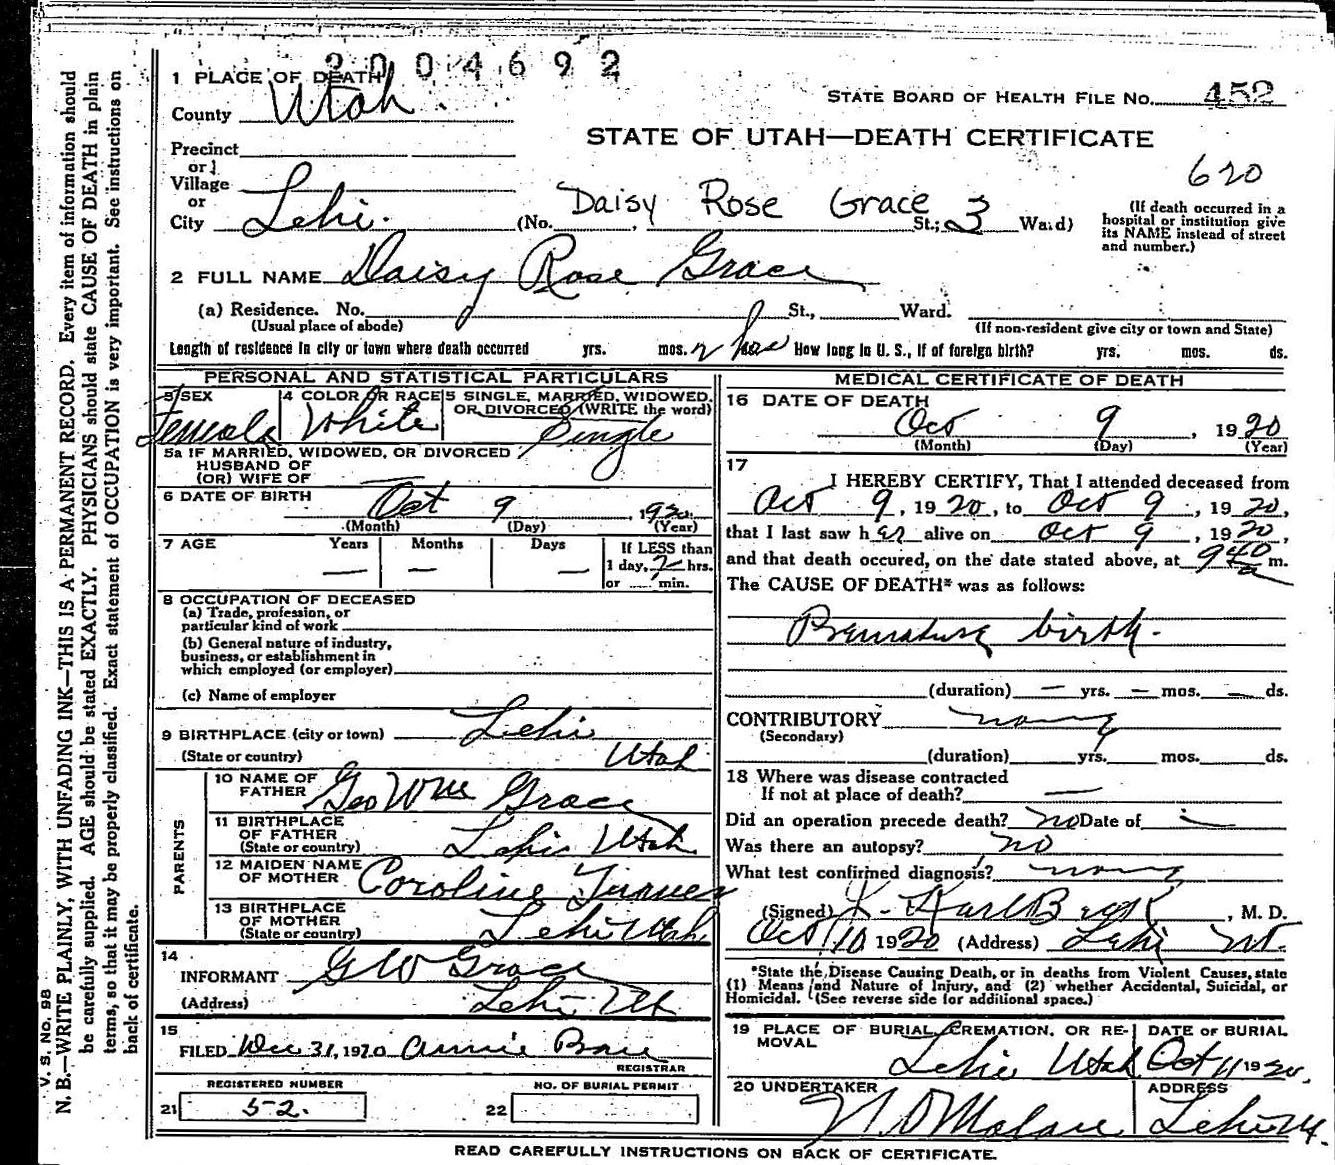 2004692
1 PLACE OF DEATH
County Utah
STATE BOARD OF HEALTH FILE NO. 452
STATE OF UTAH—DEATH CERTIFICATE
Precinct
or
Village
or
City Lehi. (No. Daisy Rose Grace St.; 3 Ward)
620
(If death occurred in a
hospital or institution give
its NAME instead of street
and number.)
2 FULL NAME Daisy Rose Grace
(a) Residence. No. St., Ward.
(Usual place of abode) (If non-resident give city or town and State)
Length of residence in city or town where death occurred yrs. mos. 2 hrs How long in U. S., if of foreign birth? yrs. mos. ds.
PERSONAL AND STATISTICAL PARTICULARS
3 SEX Female
4 COLOR OR RACE White
5 SINGLE, MARRIED, WIDOWED,
OR DIVORCED (WRITE the word)
Single
5a IF MARRIED, WIDOWED, OR DIVORCED
HUSBAND OF
(OR) WIFE OF —
6 DATE OF BIRTH
Oct 9, 1920
(Month) (Day) (Year)
7 AGE Years Months Days If LESS than
— — — 1 day, 2 hrs.
or min.
8 OCCUPATION OF DECEASED
(a) Trade, profession, or
particular kind of work
(b) General nature of industry,
business, or establishment in
which employed (or employer)
(c) Name of employer
9 BIRTHPLACE (city or town) Lehi
(State or country) Utah
PARENTS
10 NAME OF
FATHER Geo Wm Grace
11 BIRTHPLACE
OF FATHER
(State or country) Lehi Utah
12 MAIDEN NAME
OF MOTHER Caroline Turner
13 BIRTHPLACE
OF MOTHER
(State or country) Lehi Utah
14
INFORMANT G W Grace
(Address) Lehi Ut
15
FILED Dec 31, 1920 Annie
REGISTRAR
REGISTERED NUMBER
21 52.
NO. OF BURIAL PERMIT
22
MEDICAL CERTIFICATE OF DEATH
16 DATE OF DEATH
Oct 9, 1920
(Month) (Day) (Year)
17
I HEREBY CERTIFY, That I attended deceased from
Oct 9, 1920, to Oct 9, 1920,
that I last saw her alive on Oct 9, 1920,
and that death occured, on the date stated above, at 9 40 a m.
The CAUSE OF DEATH* was as follows:
Premature birth.
(duration) — yrs. — mos. — ds.
CONTRIBUTORY none
(Secondary)
(duration) yrs. mos. ds.
18 Where was disease contracted
If not at place of death? —
Did an operation precede death? no Date of —
Was there an autopsy? no
What test confirmed diagnosis? none
(Signed) , M. D.
Oct 10 1920 (Address) Lehi Ut.
*State the Disease Causing Death, or in deaths from Violent Causes, state
(1) Means and Nature of Injury, and (2) whether Accidental, Suicidal, or
Homicidal. (See reverse side for additional space.)
19 PLACE OF BURIAL, CREMATION, OR RE-
MOVAL
Lehi Utah
DATE OF BURIAL
Oct 11 1920.
20 UNDERTAKER
ADDRESS
Lehi Ut.
READ CAREFULLY INSTRUCTIONS ON BACK OF CERTIFICATE.
V. S. No. 98
N. B.—WRITE PLAINLY, WITH UNFADING INK—THIS IS A PERMANENT RECORD. Every item of information should
be carefully supplied. AGE should be stated EXACTLY. PHYSICIANS should state CAUSE OF DEATH in plain
terms, so that it may be properly classified. Exact statement of OCCUPATION is very important. See instructions on
back of certificate.